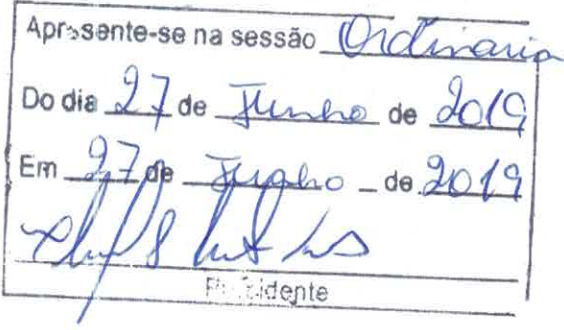 Apresente-se na sessão Ordinaria
Do dia 27 de Junho de 2019
Em 27 de Junho de 2019
Presidente